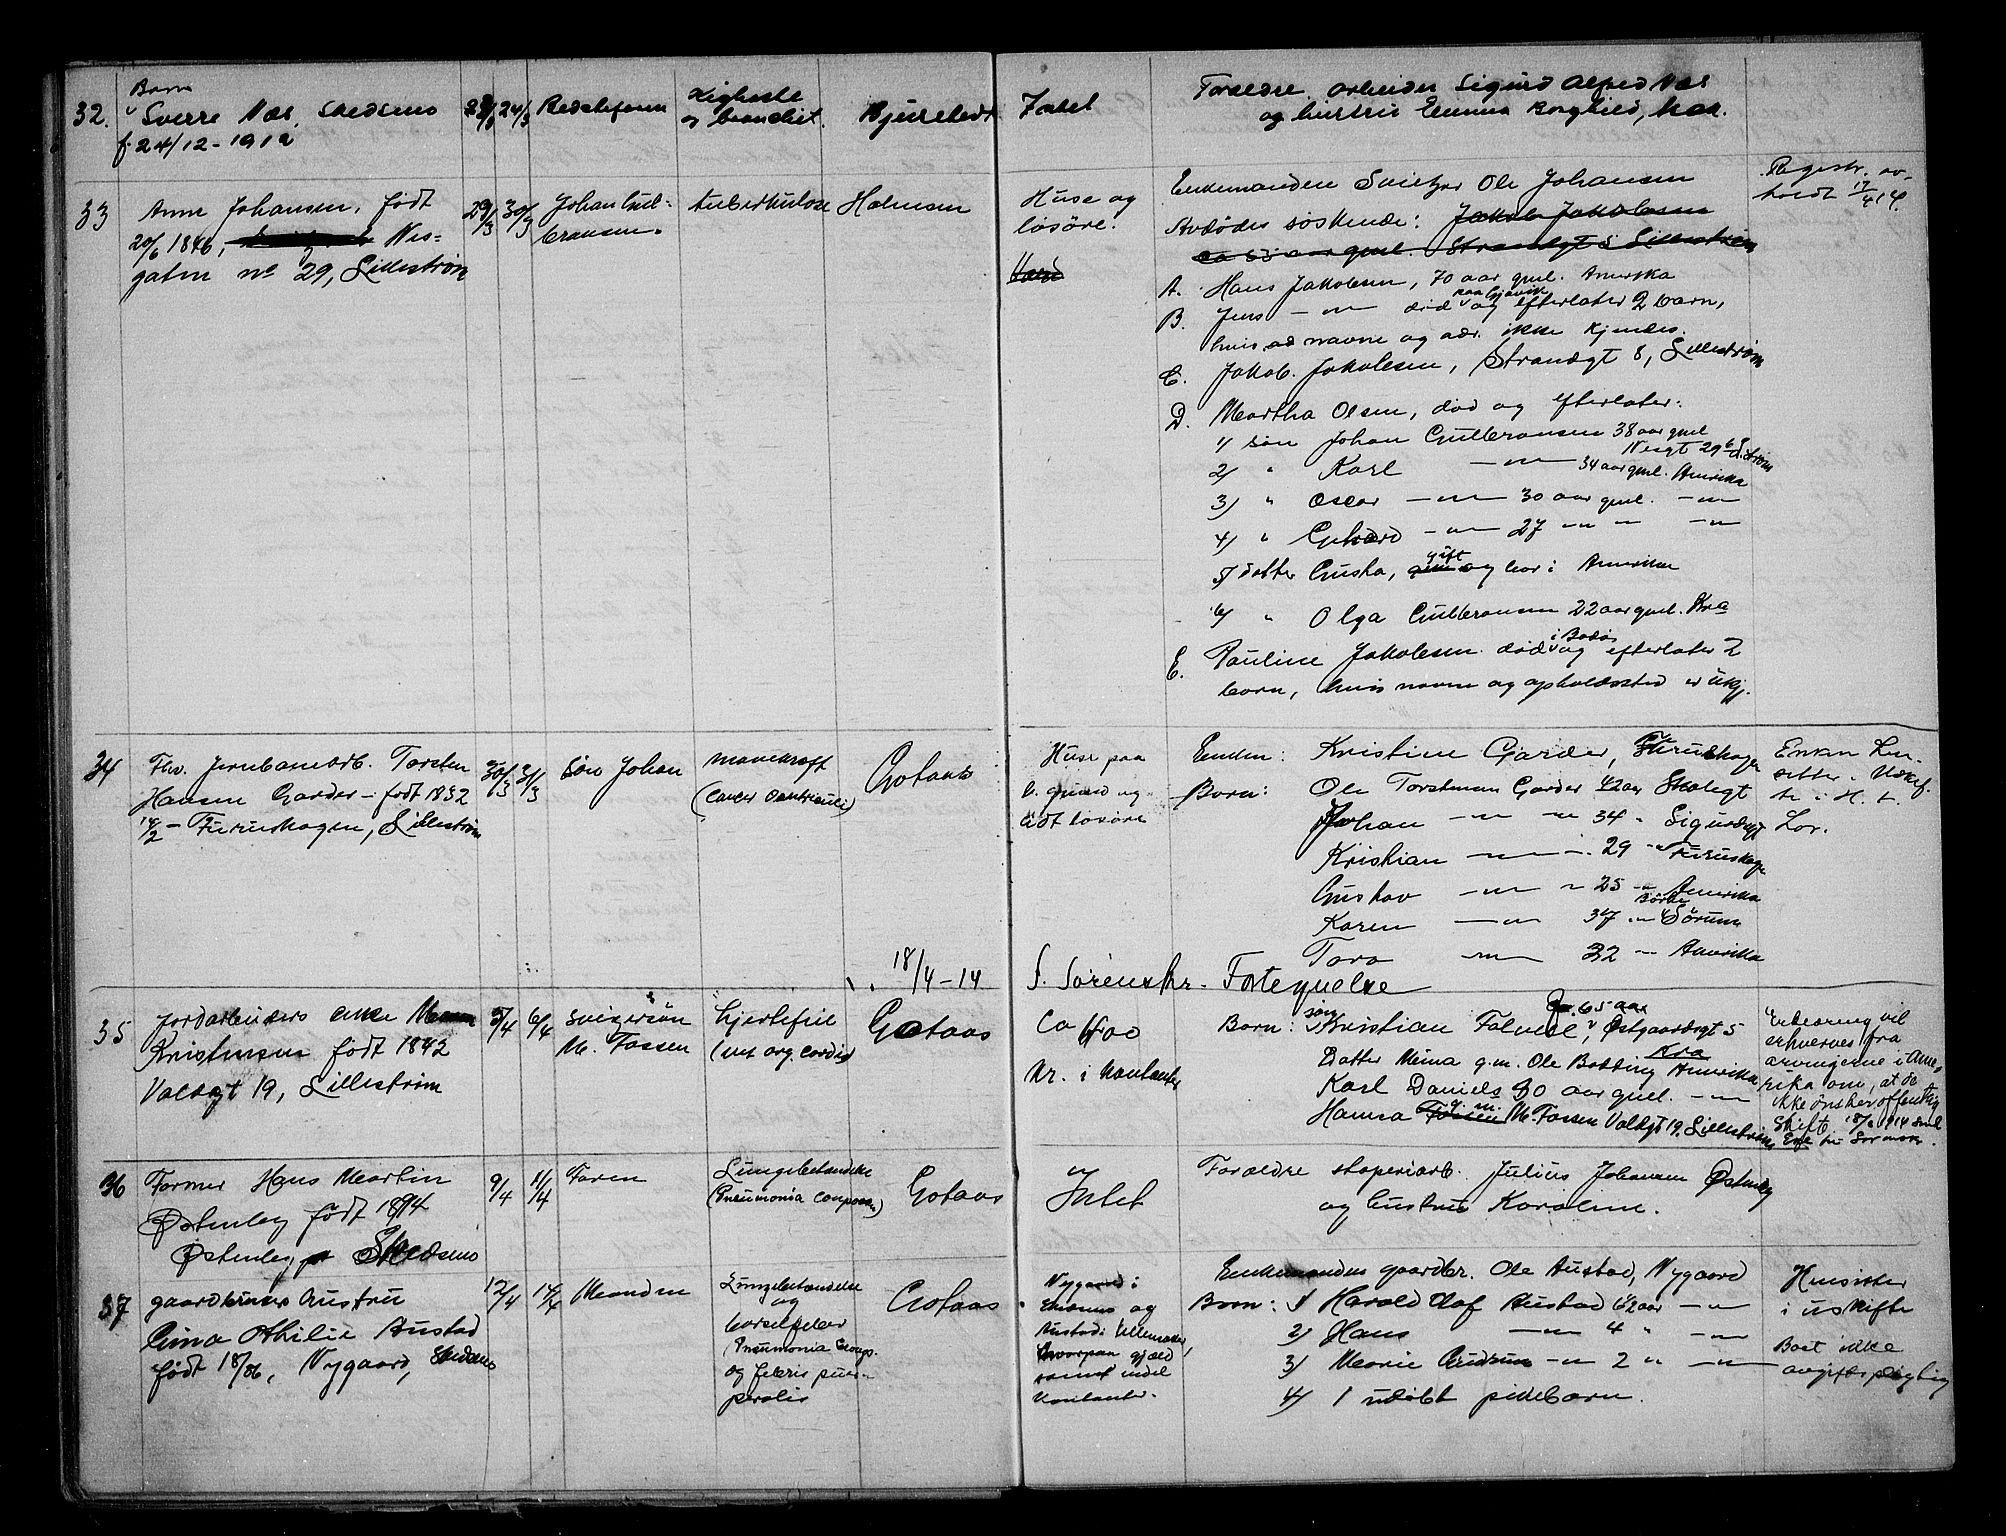 32.
Barn
Sverre Næs, Skedsmo
f. 24/12 - 1912
24/3
Bedstefaren
Kighoste
og bronchit.
Bjurstedt
Intet
Forældre arbeider Sigurd Alfred Næs
og hustru Emma Borghild,
33
Anne Johansen, født
20/6 1846, Nes-
gaten no 29, Lillestrøm
29/3
30/3
Johan Gul-
bransen.
tuberkulose
Holmsen
Huse og
løsøre.
Enkemanden Sveitzer Ole Johansen
Avdødes søskende: Jakob Jakobsen
ca 55 aar gml. Strandgt 8 Lillestrøm
A. Hans Jakobsen, 70 aar gml. Amerika
B. Jens — " — død paa Gjøvik og efterlater 2 barn,
hvis navne og adr. ikke kjendes.
C. Jakob Jakobsen, Strandgt 8, Lillestrøm
D. Martha Olsen, død og efterlater:
1) søn Johan Gulbransen 38 aar gml
Nesgt 29 Lillestrøm
2) " Karl — " — 34 aar gml. Amerika
3) " Oscar — " — 30 aar gml. — " —
4) " Gerhard — " — 27 " " — " —
5) datter Gusta, gift og bor i Amerika
6) " Olga Gulbransen 22 aar gml. Kra
E. Pauline Jakobsen død i Bodø og efterlater 2
barn, hvis navne og opholdssted er ukj.
Registr. av-
holdt 17/4 14.
34
Fhv. jernbanearb. Torsten
Hansen Garder - født 1832
14/2 - Furuskogen, Lillestrøm
30/3
31/3
søn Johan
mavekræft
(cancer ventriculi)
Gotaas
Huse paa
l. grund og
lidt løsøre
Enken: Kristine Garder, Furuskogen
Barn: Ole Torstensen Garder 42 aar Skolegt
Johan — " — 34 " Sigurdsgt
Kristian — " — 29 " Furuskogen
Gustav — " — 25 " Amerika
Karen — " — 37 " Børke Sørum
Tora — " — 32 — Amerika
Enken hen-
sitter i uskif-
te i H. t.
Lov.
18/4 - 14
S. Sørenskr. Fortegnelse
35
Jordarbeiders enke
Kristensen født 1842
Voldgt 19, Lillestrøm
5/4
6/4
svigersøn
M. Fossen
hjertefeil
(vit. org. cordis)
Gotaas
Ca 400
kr. i kontanter
Barn: søn Kristian
Østgaardsgt 5
Kra
Datter Mina g.m. Ole Amerika
Karl Daniels 30 aar gml. — " —
Hanna g. m. M. Fossen Voldgt 19, Lillestrøm
Erklæring vil
erhverves fra
arvingerne i Ame-
rika om, at de
ikke ønsker offentlig
skifte.
36
Former Hans Martin
Østenby født 1894
Østenby Skedsmo
9/4
11/4
Faren
Lungebetændelse
(Pneumonia
Gotaas
Intet
Forældre støperiarb. Julius Johansen Østenby
og hustru Karoline.
37
gaardbruker hustru
Gina Othilie Austad
født 18/86, Nygaard, Skedsmo
12/4
14/4
Manden
Lungebetændelse
og
barselfeber
(Pneumonia Croup.
og febris puer-
peralis
Gotaas
Nygaard i
Skedsmo og
Austad i Ullensaker,
hvorpaa gjæld
samt endel
kontanter.
Enkemanden gaardbr. Ole Austad, Nygaard
Barn: 1) Harald Olaf Austad 6 1/2 aar — " —
2) Hans — " — 4 " — " —
3) Marie Gudrun — " — 2 " — " —
4) 1 udøbt pikebarn.
Hensitter
i uskifte
Boet ikke
avgiftspligtig